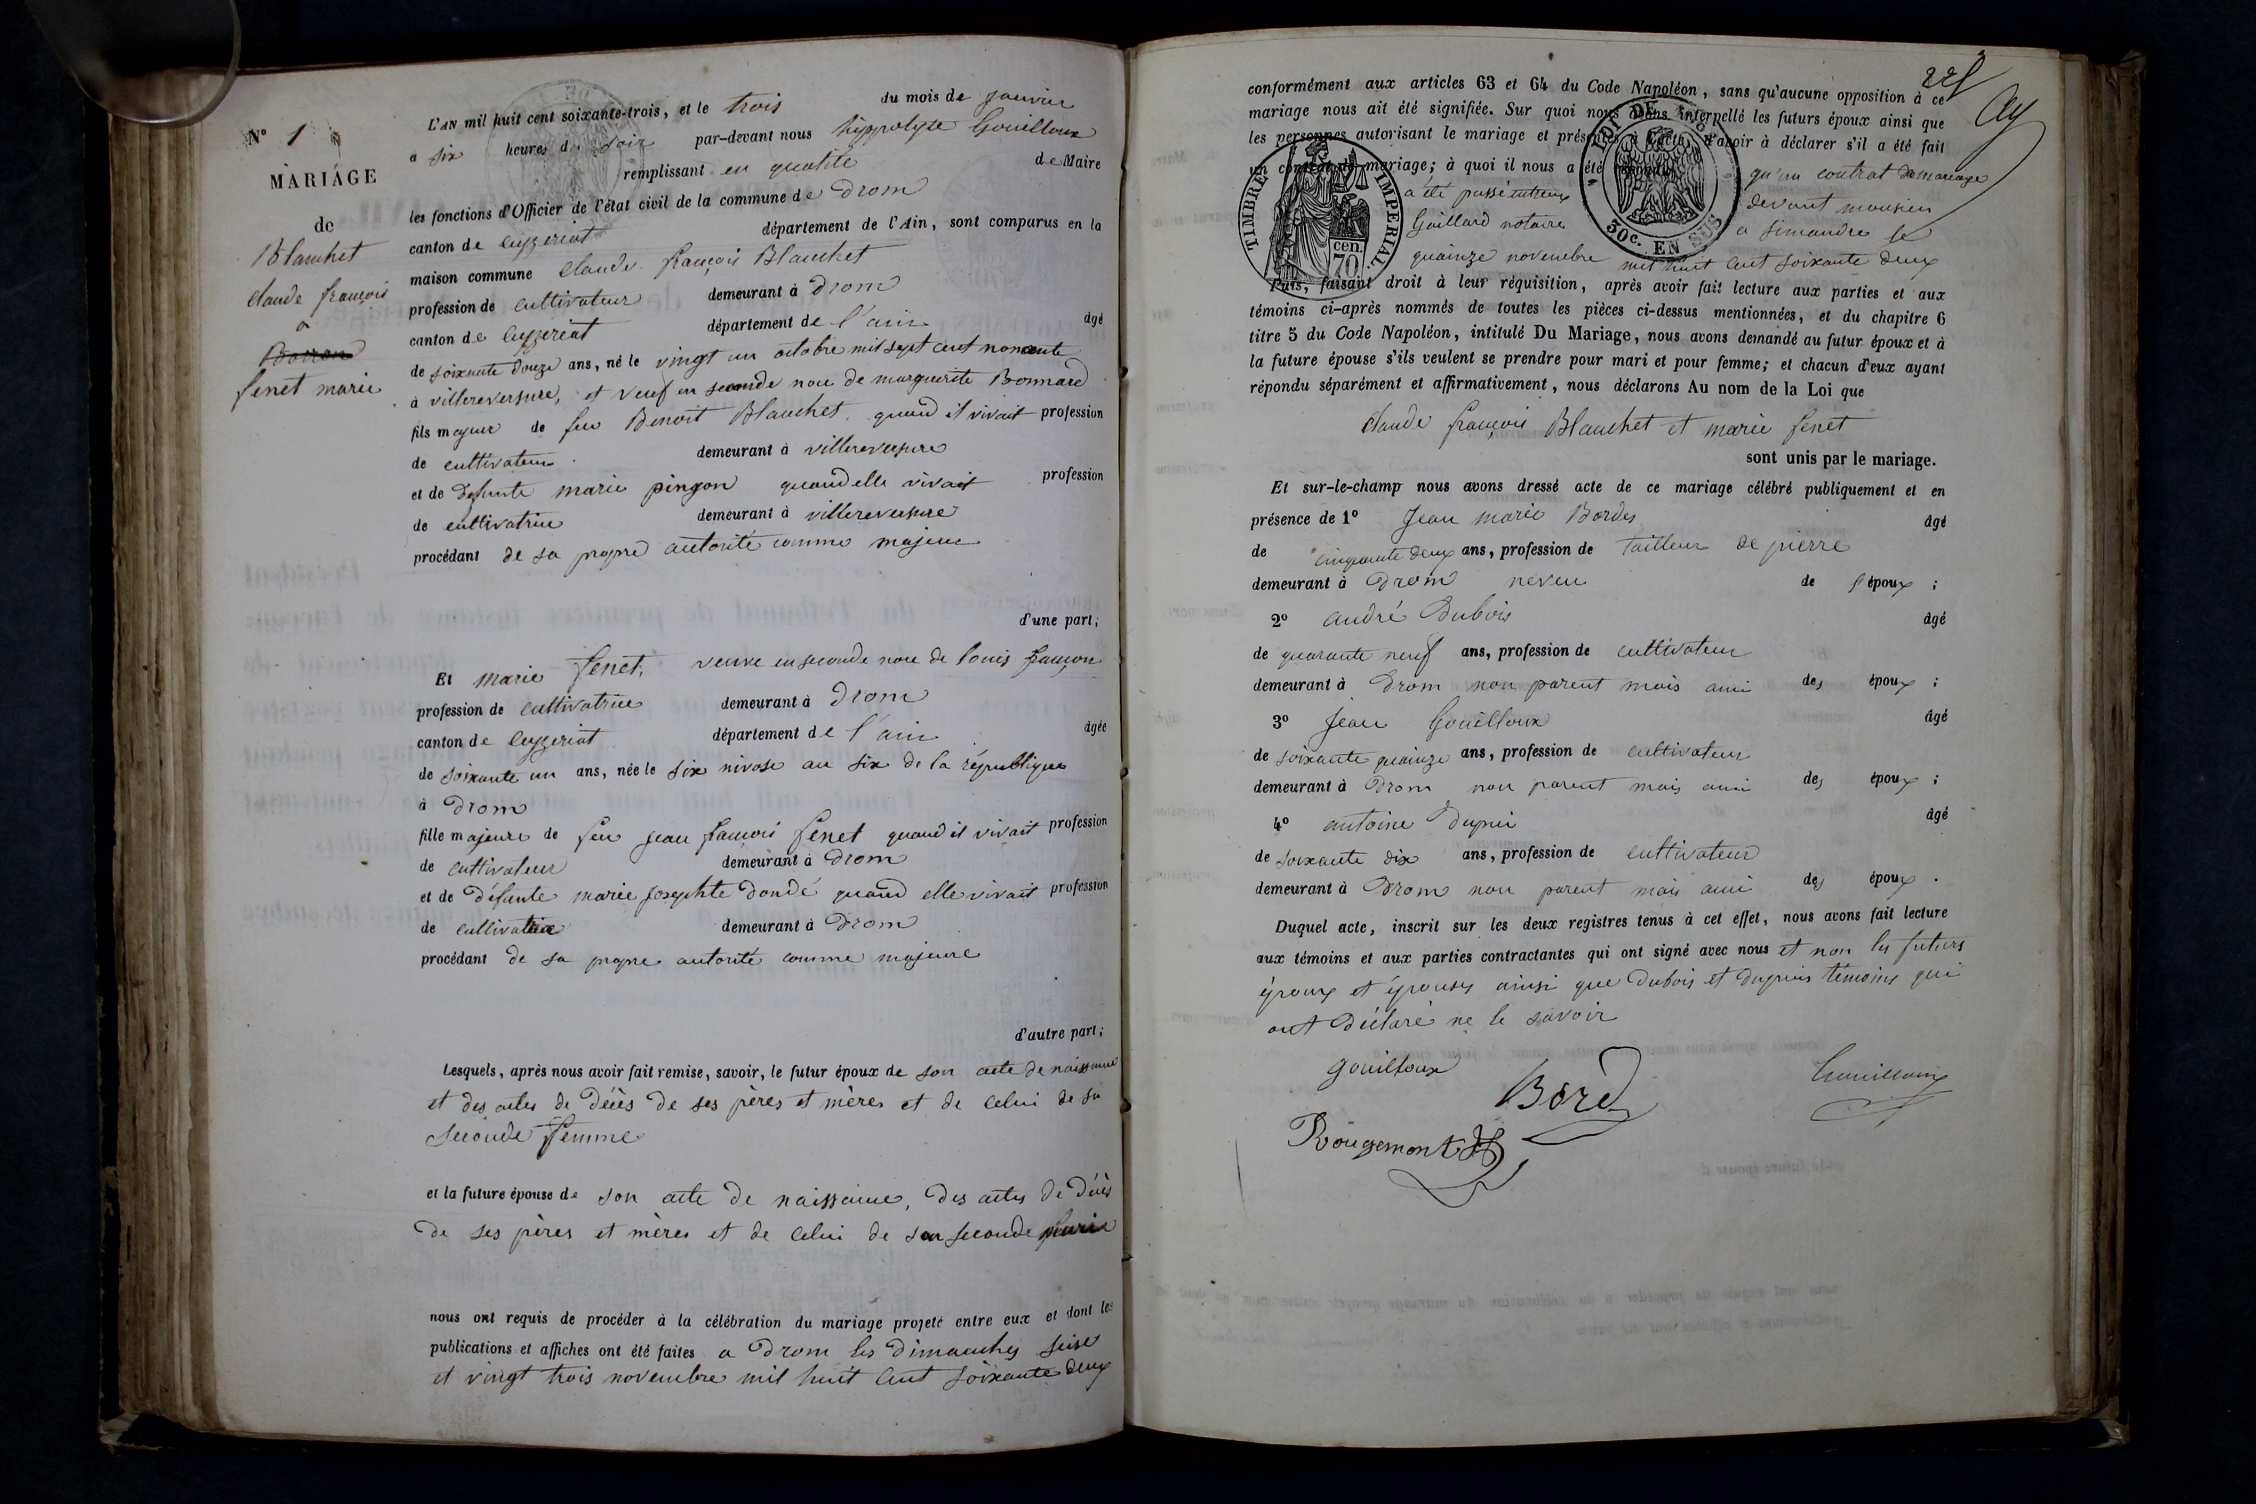 N° 1
MARIAGE
de
Blanchet
claude françois
a
fenet marie
L'AN mil huit cent soixante-trois, et le trois du mois de janvier
a six heures du soir par-devant nous hyppolyte Gouilloux
remplissant en qualité de Maire
les fonctions d'Officier de l'état civil de la commune de Drom
canton de Ceyzeriat département de l'Ain, sont comparus en la
maison commune Claude françois Blanchet
profession de cultivateur demeurant à Drom
canton de Ceyzeriat département de l'ain âgé
de soixante douze ans, né le vingt un octobre mil sept cent nonante
à villereversure, et veuf en seconde noce de marguerite Bonnard
fils majeur de feu Benoit Blanchet quand il vivait profession
de cultivateur demeurant à villereversure
et de Defunte marie pingon quand elle vivait profession
de cultivatrice demeurant à villereversure
procédant de sa propre autorité comme majeur
d'une part;
Et marie fenet, veuve en seconde noce de louis françon
profession de cultivatrice demeurant à Drom
canton de Ceyzeriat département de l'ain âgée
de soixante un ans, née le six nivose an six de la république
à Drom
fille majeure de feu jean françois fenet quand il vivait profession
de cultivateur demeurant à Drom
et de Défunte marie josephte Dondé quand elle vivait profession
de cultivatrice demeurant à Drom
procédant de sa propre autorité comme majeure
d'autre part;
Lesquels, après nous avoir fait remise, savoir, le futur époux de son acte de naissance
et des actes de Décès de ses pères et mères et de celui de sa
seconde femme
et la future épouse de son acte de naissance, des actes de Décès
de ses pères et mères et de celui de son seconde
nous ont requis de procéder à la célébration du mariage projeté entre eux et dont les
publications et affiches ont été faites a Drom les Dimanches seise
et vingt trois novembre mil huit cent soixante deux
conformément aux articles 63 et 64 du Code Napoléon, sans qu'aucune opposition à ce
mariage nous ait été signifiée. Sur quoi nous avons interpellé les futurs époux ainsi que
les personnes autorisant le mariage et présentes à l'acte d'avoir à déclarer s'il a été fait
un contrat de mariage; à quoi il nous a été répondu qu'un contrat de mariage
a été passé entreux devant monsieur
Gaillard notaire a simandre le
quainze novembre mil huit cent soixante deux
TIMBRE IMPERIAL
cen.
70
30c. EN SUS
Puis, faisant droit à leur réquisition, après avoir fait lecture aux parties et aux
témoins ci-après nommés de toutes les pièces ci-dessus mentionnées, et du chapitre 6
titre 5 du Code Napoléon, intitulé Du Mariage, nous avons demandé au futur époux et à
la future épouse s'ils veulent se prendre pour mari et pour femme; et chacun d'eux ayant
répondu séparément et affirmativement, nous déclarons Au nom de la Loi que
Claude françois Blanchet et marie fenet
sont unis par le mariage.
Et sur-le-champ nous avons dressé acte de ce mariage célébré publiquement et en
présence de 1° Jean marie Bordes âgé
de cinquante deux ans, profession de tailleur de pierre
demeurant à Drom neveu de l'époux;
2° andré Dubois âgé
de quarante neuf ans, profession de cultivateur
demeurant à Drom non parent mais ami des époux;
3° Jean Gouilloux âgé
de soixante quainze ans, profession de cultivateur
demeurant à Drom non parent mais ami des époux;
4° antoine Dupui âgé
de soixante dix ans, profession de cultivateur
demeurant à Drom non parent mais ami des époux.
Duquel acte, inscrit sur les deux registres tenus à cet effet, nous avons fait lecture
aux témoins et aux parties contractantes qui ont signé avec nous et non les futurs
époux et épouses ainsi que Dubois et dupuis témoins qui
ont déclaré ne le savoir
gouilloux
Bord
Gouilloux
Rougemont